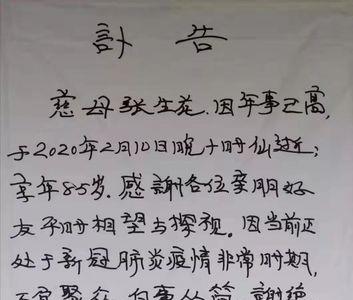 訃 告
慈母张生花.因年事已高,
于2020年2月10日晚十时仙逝;
享年85岁.感謝各位亲朋好
友平时相望与探视。因当前正
处于新冠肺炎疫情非常时期,
不宜聚众,白事从简,謝绝